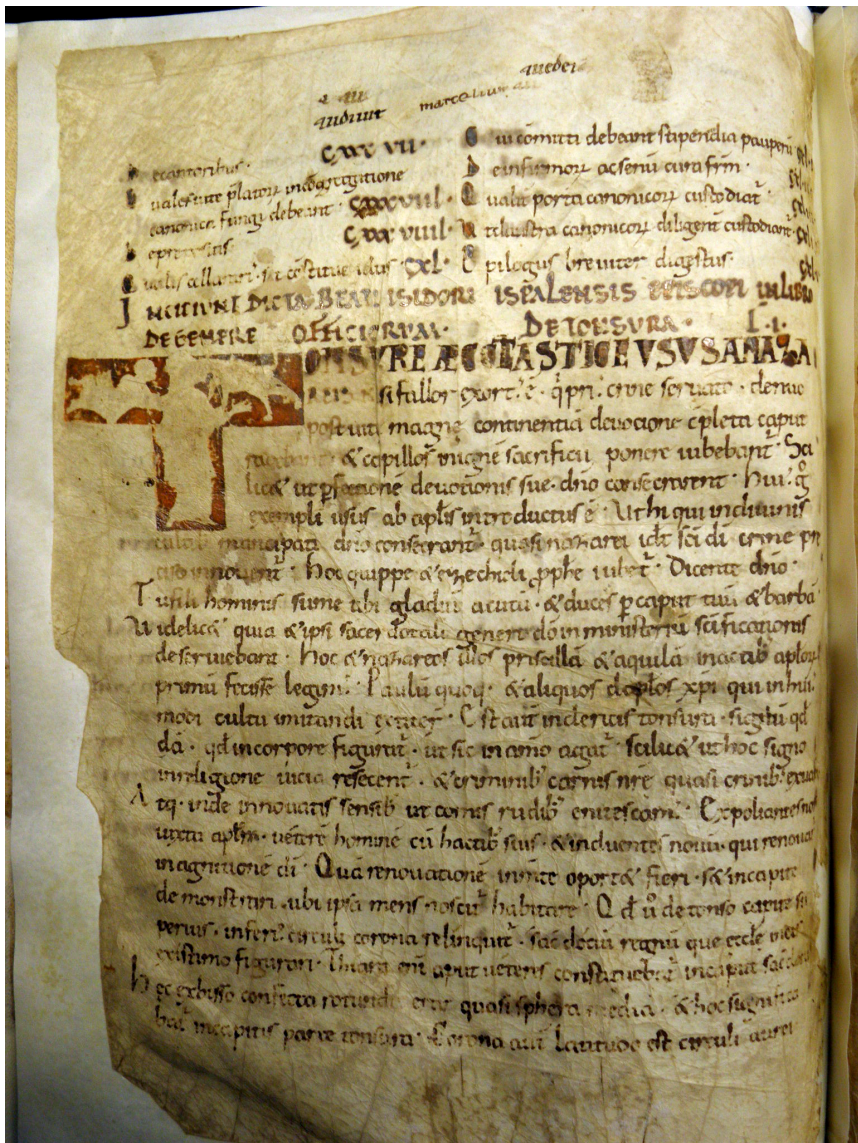 audiunt
marcellinus
CXXXVII·
ecantoribus·
ualesuite p̄lator̨ in c̄gregatione
canonica fungi debeant· CXXXVIII·
CXXXVIIII·
eprepositis
CXL·
ui comitti debeant stipendia pauperū
einfirmor̨ ac senū cura frm̄·
ualis porta canonicor̨ custodiat᷑·
claustra canonicor̨ diligent̄ custodiant·
pilogus breuiter digestus·
INCIPIUNT DICTA BEATI ISIDORI ISPALENSIS EPISCOPI IN LIBRO
DE GENERE OFFICIORUM· DE TONSURA· L·I·
TONSURE ÆCCLASTICE USUS A NAZA
si fallor exort᷑ ē· q̇ pri· crine seruato· denuo
post uitę magnę continentiā deuocione c̄pleta caput
& capillos in ignē sacrificii ponere iubebant᷑· Sci
lic& ut p̄fectionē deuotionis sue· dn̄o consecrarent· Hui᷑· g̊
exempli usus ab apl̄is introductus ē· Ut hi qui in diuinis
cultib mancipati dn̄o consecrant᷑· quasi nazarei idē sc̄i dī crine pre
ciso innouent᷑· hoc quippe & ezechieli ꝓphe iub&᷑· Dicente dn̄o·
Tu fili hominis sume tibi gladiū acutū· & duces p̄ caput tuū & barbā
Uidelic& quia & ipsi sacerdotali genere dō in ministeriū sc̄ificationis
deseruiebant· hoc & nazareos illos priscillā & aquilā in actib apl̄or̨
primū fecisse legim᷑· Paulū quoq· & aliquos discip̄los xp̄i qui in hui᷑
modi cultu imitandi extiter̄· Est aut̄ in clericis tonsura· signū qd̄
dā· qd̄ in corpore figurat᷑· ut sic in anīo agat᷑· scilic& ut hoc signo
in religione uicia resecent᷑· & criminib᷑ carnis nr̄e quasi crinib᷑ exuam
Atq· inde innouatis sensib᷑ ut comis rudib᷑ enitescam᷑· Expoliantes nos
iuxta apl̄m· ueterē hominē cū hactib᷑ suis· & induentes nouū· qui renouat
in agnitionē dī· Quā renouationē in m̄te oport& fieri· s& in capite
demonstrari· ubi ipsa mens noscit᷑ habitare· Qd̄ ů detonso capite su
perius· inferi᷑ circuli corona relinquit᷑· sacdocii regnū que eccl̄e in eis
existimo figurari· Thiara enī aput ueteris constituebat᷑ in caput sacdotū
Hec ex bisso confecta rotunda erat quasi sphera media· & hoc significa
bat᷑ in capitis parte tonsura· Corona aut̄ latitudo est circuli aurei